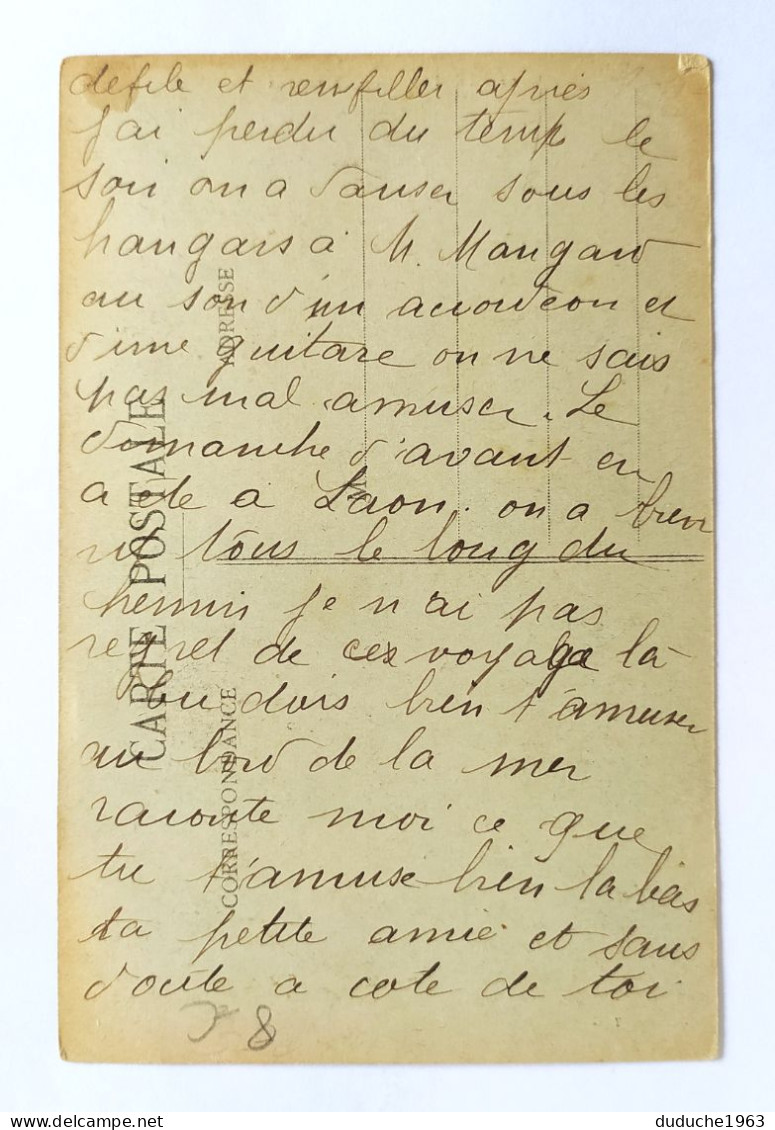 defile et renfiller après
J'ai perdu du temp le
soir on a danser sous les
hangars à M. Mangard
au son d'un accordeon et
d'une guitare on ne sais
pas mal amuser. Le
dimanche d'avant en
a ete a Laon. on a bien
ri tous le long du
chemin je n'ai pas
regret de ces voyage là
tu dois bien t'amuser
au bord de la mer
raconte moi ce que
tu t'amuse bien la bas
ta petite amie et sans
doute a cote de toi
8
CARTE POSTALE
CORRESPONDANCE
ADRESSE
duduche1963